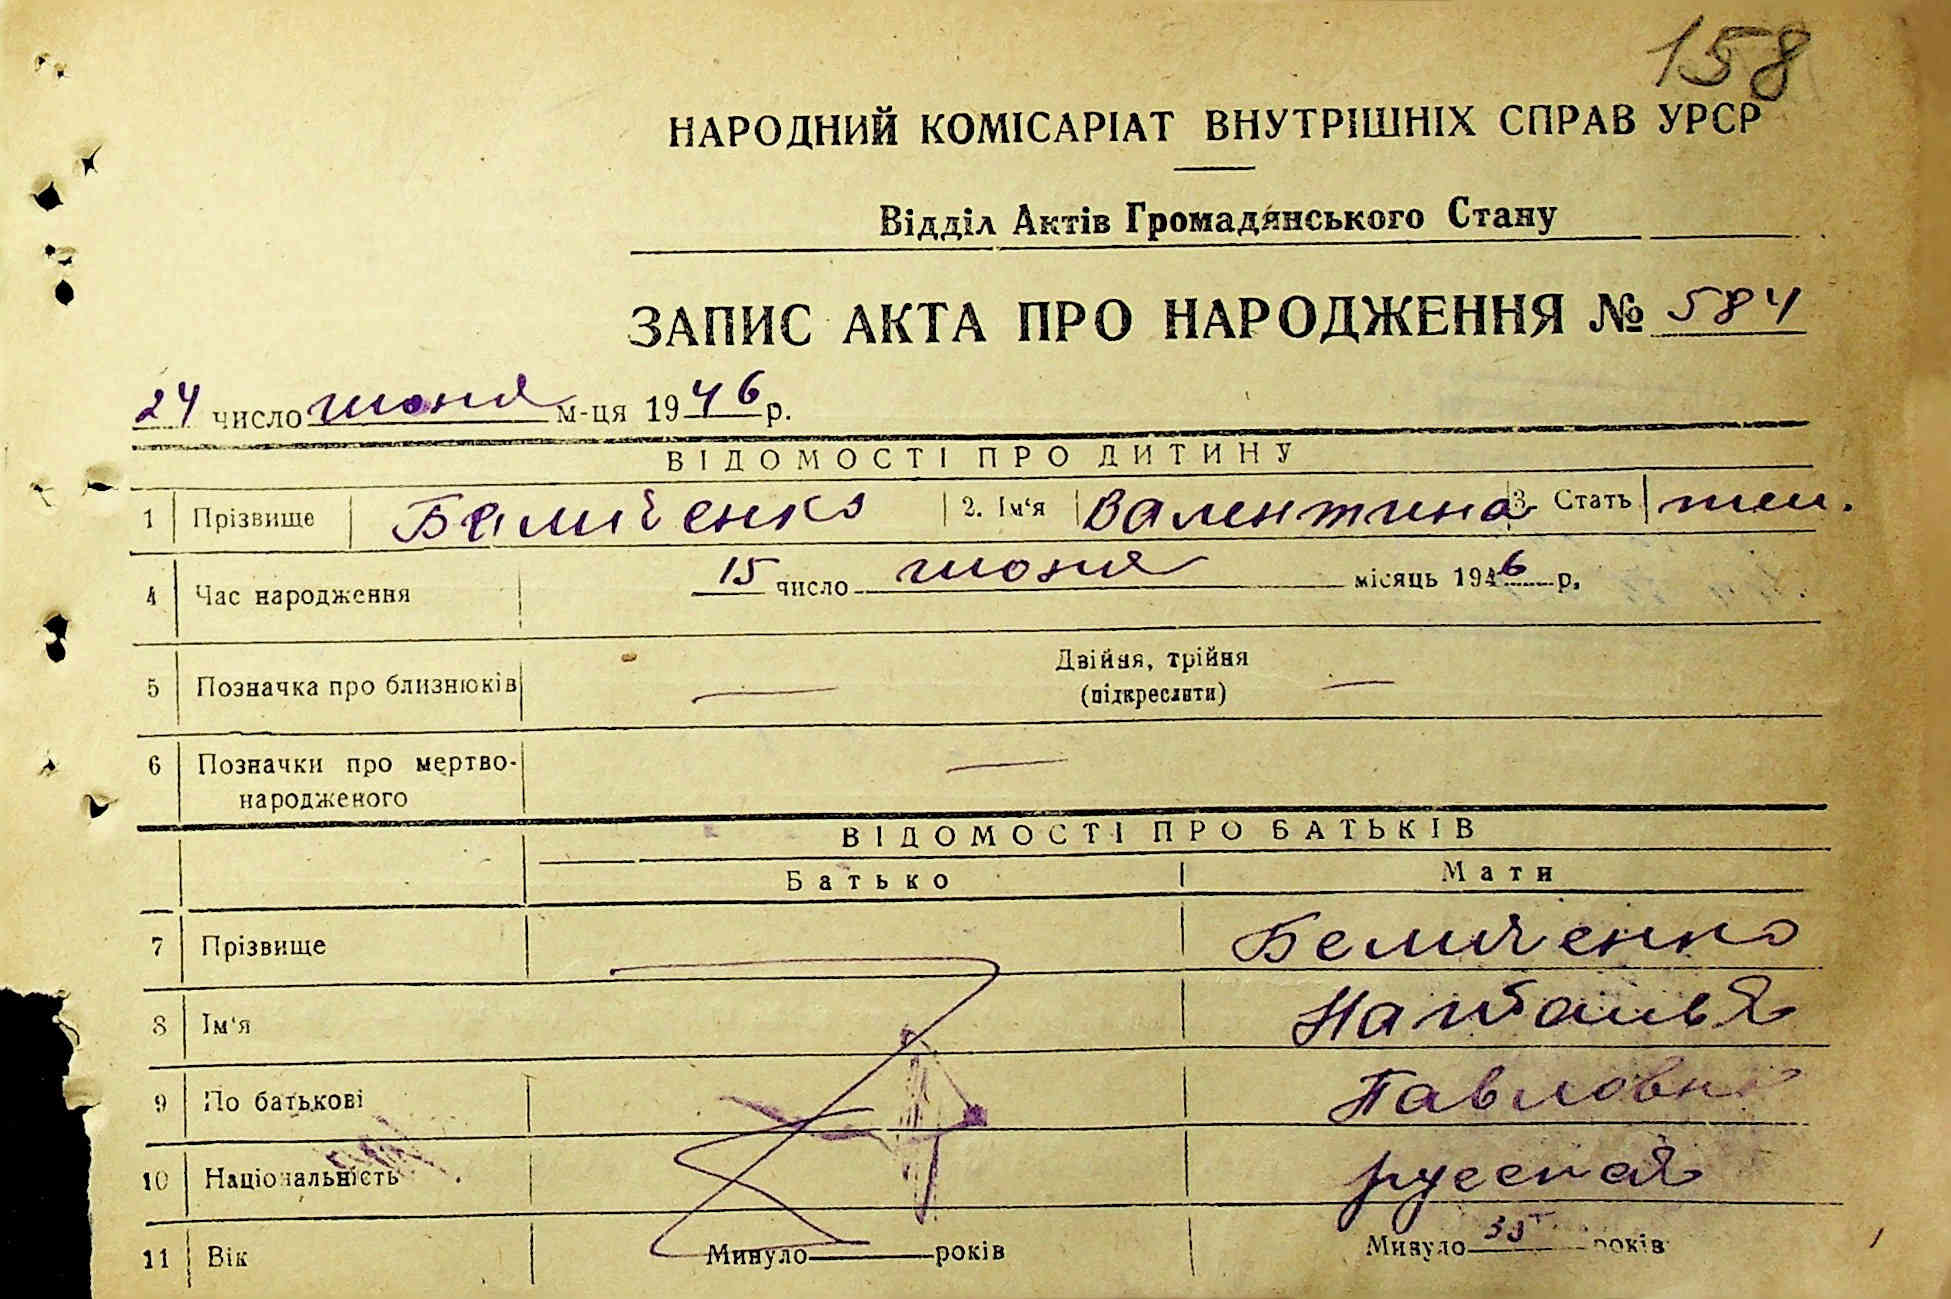 158
НАРОДНИЙ КОМІСАРІАТ ВНУТРІШНІХ СПРАВ УРСР
Відділ Актів Громадянського Стану
ЗАПИС АКТА ПРО НАРОДЖЕННЯ № 584
24 число июня м-ця 1946 р.
ВІДОМОСТІ ПРО ДИТИНУ
1 Прізвище Беличенко 2. Ім'я Валентина 3. Стать жен.
4 Час народження 15 число июня місяць 1946 р.
5 Позначка про близнюків — Двійня, трійня —
(підкреслити)
6 Позначки про мертво- —
народженого
ВІДОМОСТІ ПРО БАТЬКІВ
Батько Мати
7 Прізвище Беличенко
8 Ім'я Наталья
9 По батькові Павловна
10 Національність русская
11 Вік Минуло років Минуло років